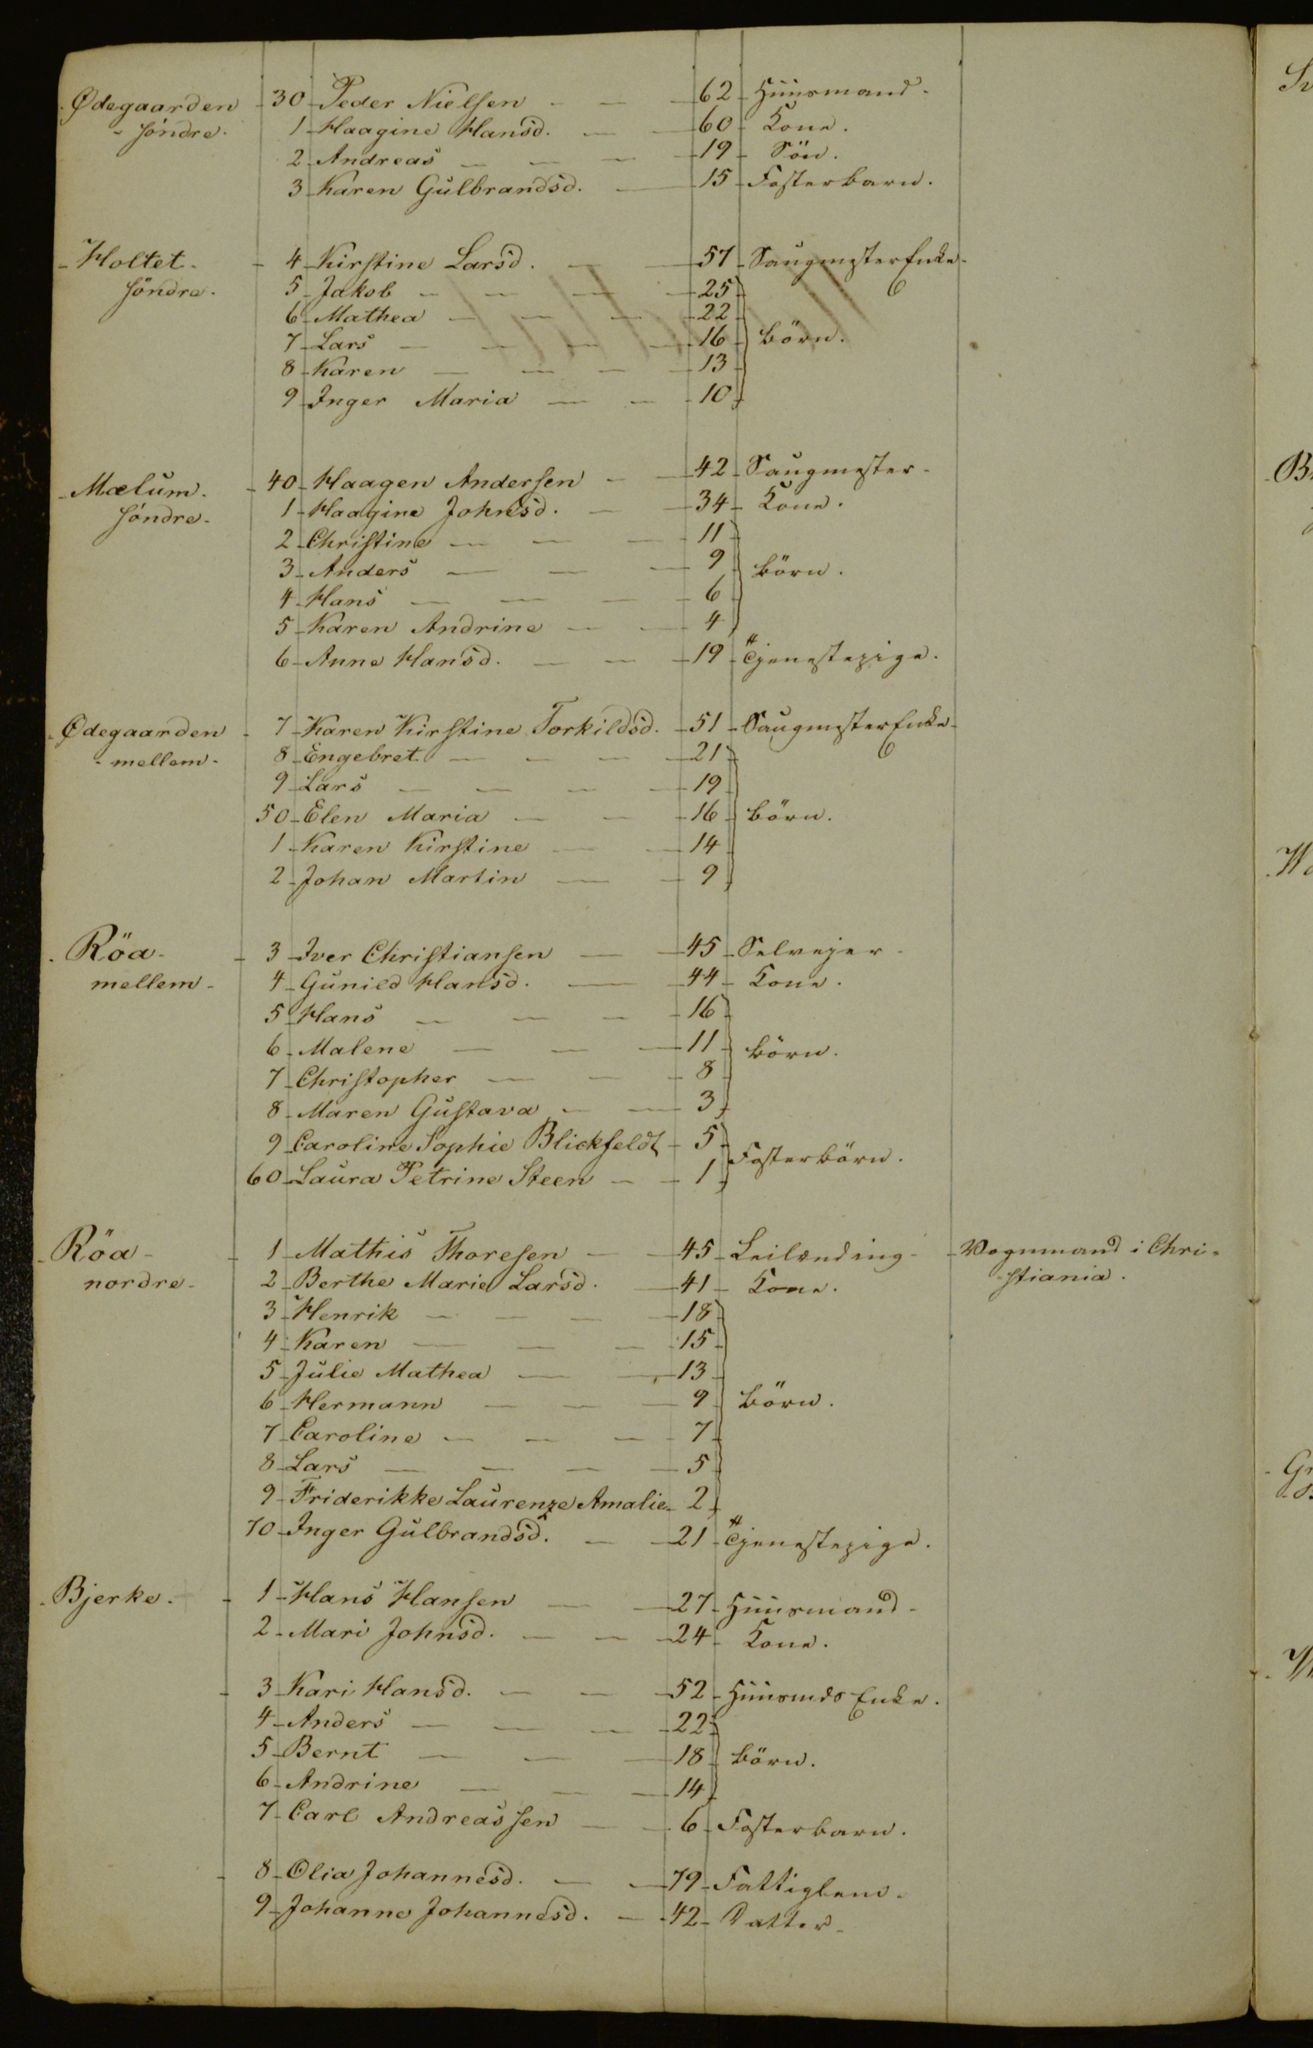 Ødegaarden - 30 - Peder Nielsen - 62 - Huusmand.
- söndre. 1 - Haagine Hansd. - 60 - Kone.
2 - Andreas - 19 - Sön.
3 - Karen Gulbrandsd. - 15 - Fosterbarn.
Holtet - 4 - Kirstine Larsd. - 57 - Saugmester Enke.
söndre. 5 - Jakob - 25
6 - Mathea - 22
7 - Lars - 16 börn.
8 - Karen - 13
9 - Inger Maria - 10
Mælum. - 40 - Haagen Andersen - 42 - Saugmester.
söndre. 1 - Haagine Johnsd. - 34 - Kone.
2 - Christine - 11
3 - Anders - 9 börn.
4 - Hans - 6
5 - Karen Andrine - 4
6 - Anne Hansd. - 19 - Tjenestepige.
Ødegaarden - 7 - Karen Kirstine Torkildsd. - 51 - Saugmester Enke.
- mellem. 8 - Engebret - 21
9 - Lars - 19
50 - Elen Maria - 16 börn.
1 - Karen Kirstine - 14
2 - Johan Martin - 9
Röa - 3 - Iver Christiansen - 45 - Selvejer.
mellem. 4 - Gunild Hansd. - 44 - Kone.
5 - Hans - 16
6 - Malene - 11 börn.
7 - Christopher - 8
8 - Maren Gustava - 3
9 - Caroline Sophie Blickfeldt - 5 Fosterbörn.
60 - Laura Petrine Steen - 1
Röa - 1 - Mathis Thoresen - 45 - Leilænding - Vognmand i Chri-
nordre. 2 - Berthe Marie Larsd. - 41 - Kone. stiania.
3 - Henrik - 18
4 - Karen - 15
5 - Julie Mathea - 13
6 - Hermann - 9 börn.
7 - Caroline - 7
8 - Lars - 5
9 - Friderikke Laurenze Amalie - 2
70 - Inger Gulbrandsd. - 21 - Tjenestepige.
Bjerke. - 1 - Hans Hansen - 27 - Huusmand.
2 - Mari Johnsd. - 24 - Kone.
- 3 - Kari Hansd. - 52 - Huusmds Enke.
4 - Anders - 22
5 - Bernt - 18 börn.
6 - Andrine - 14
7 - Carl Andreassen - 6 - Fosterbarn.
- 8 - Olia Johannesd. - 79 - Fattiglem.
9 - Johanne Johannesd. - 42 - Datter.